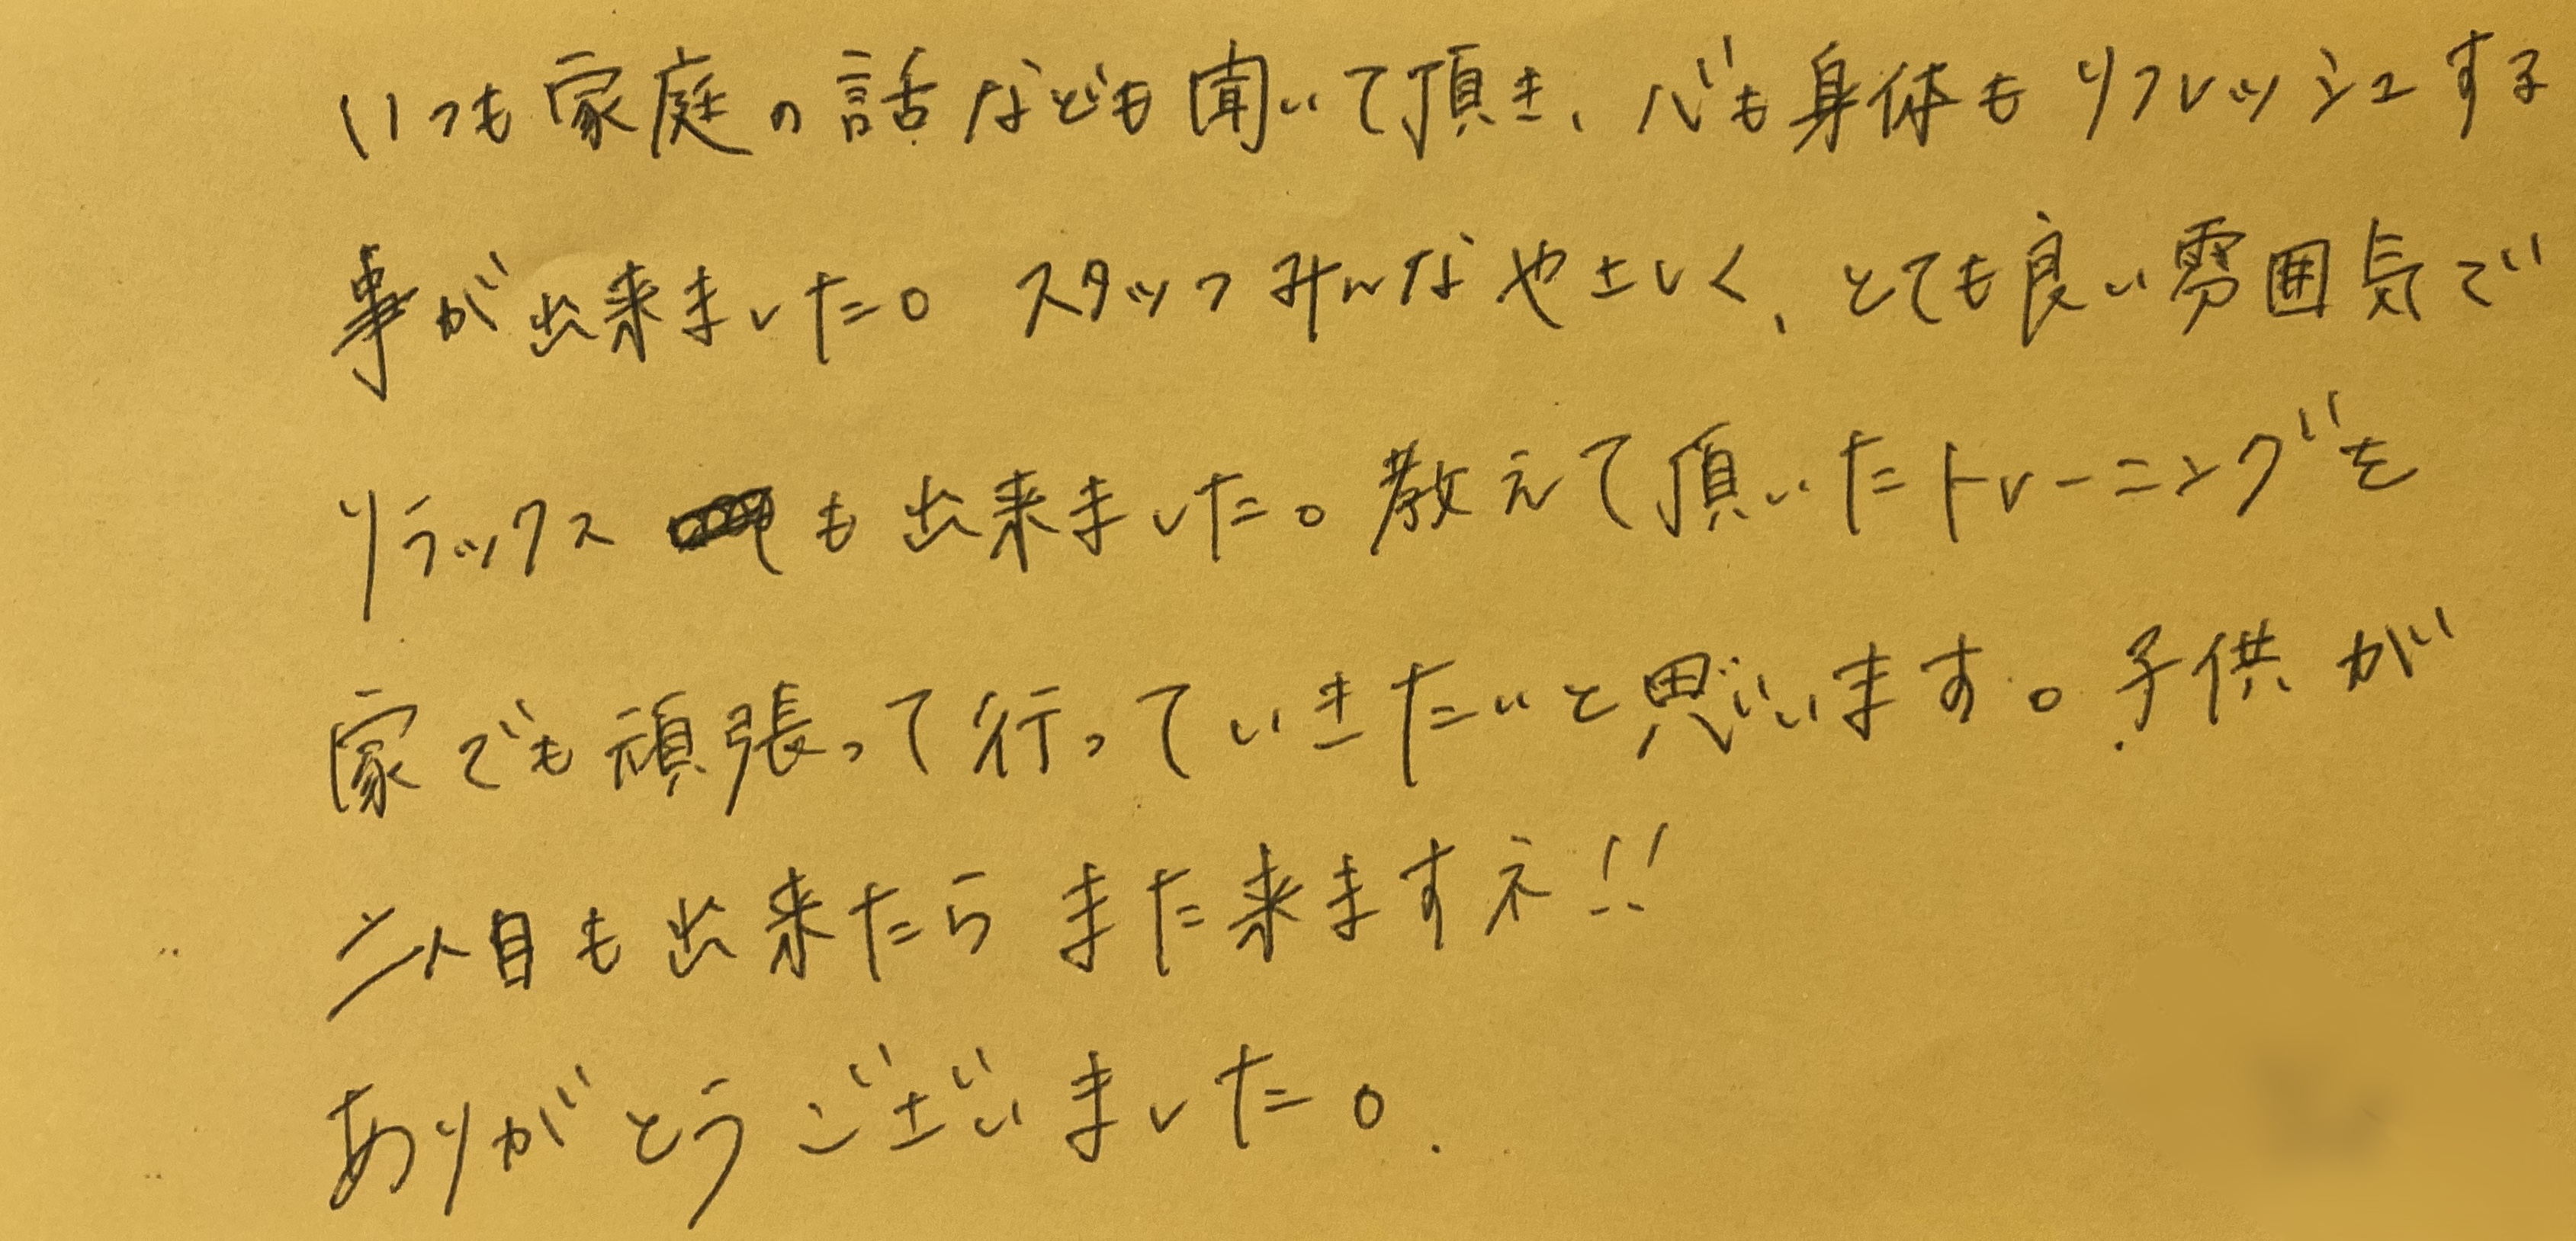 いつも家庭の話なども聞いて頂き、心も身体もリフレッシュする
事が出来ました。スタッフみんなやさしく、とても良い雰囲気で
リラックスも出来ました。教えて頂いたトレーニングを
家でも頑張って行っていきたいと思います。子供が
二人目も出来たらまた来ますネ!!
ありがとうございました。